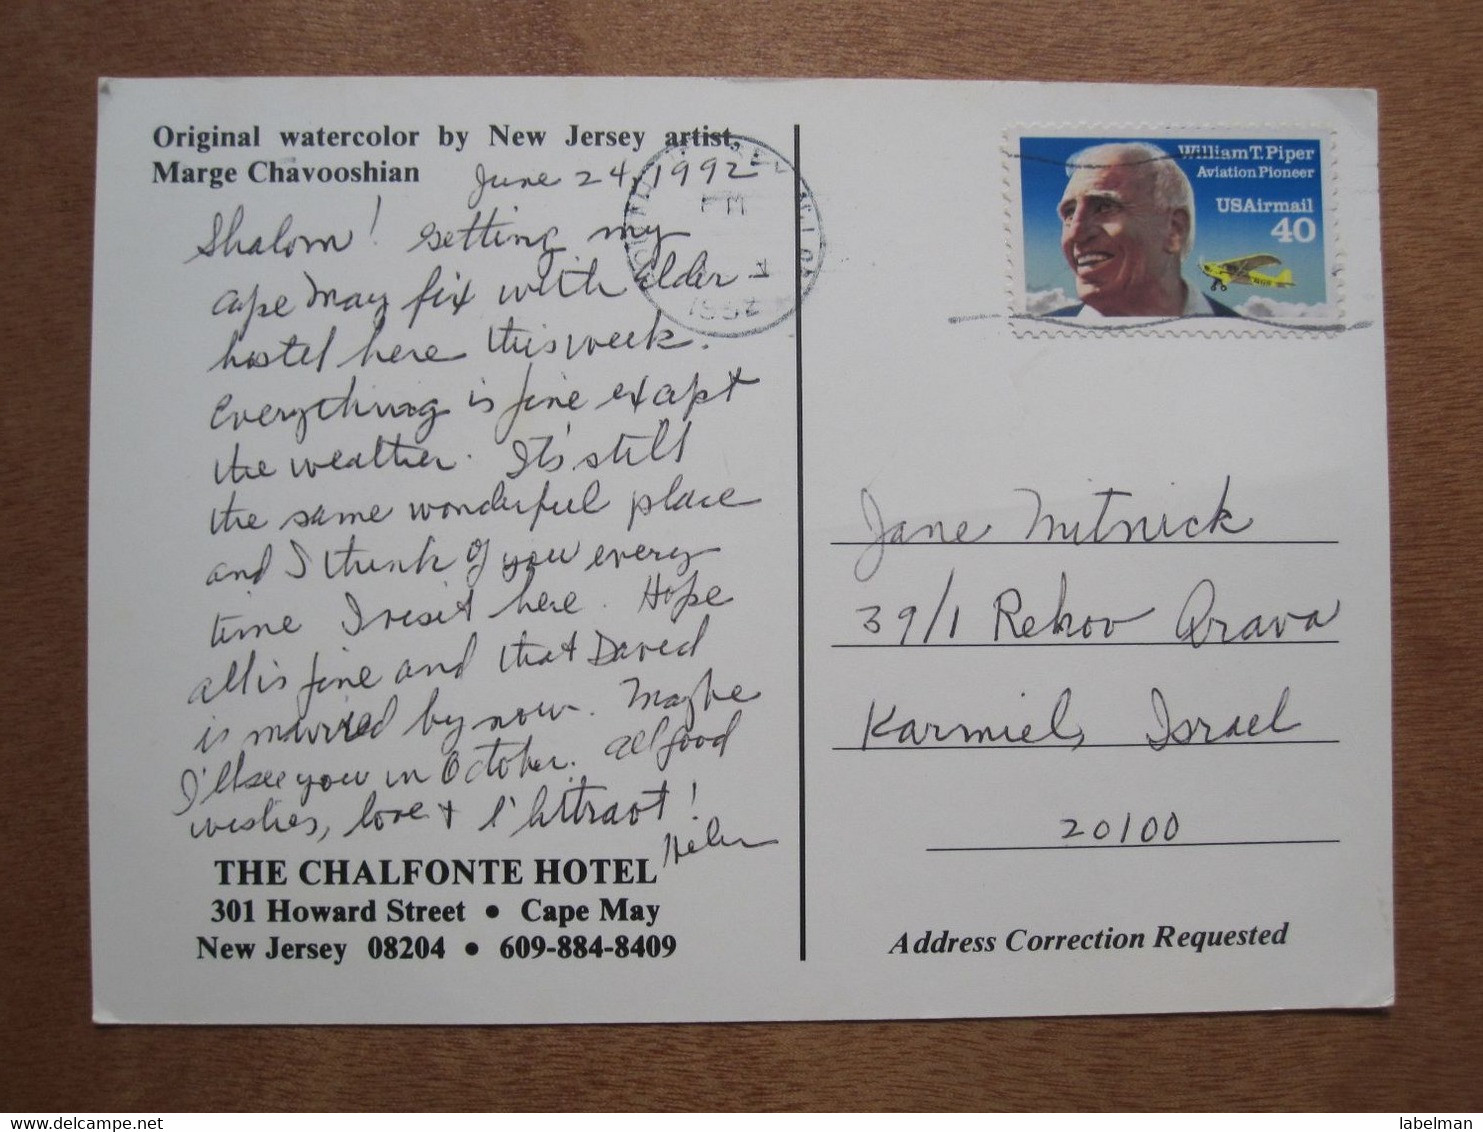 Original watercolor by New Jersey artist,
Marge Chavooshian
June 24, 1992
Shalom! Getting my
Cape May fix with Elder-
hostel here this week.
Everything is fine except
the weather. It's still
the same wonderful place
and I think of you every
time I visit here. Hope
all is fine and that David
is married by now. Maybe
I'll see you in October. All good
wishes, love & l'hitraot!
Helen
THE CHALFONTE HOTEL
301 Howard Street • Cape May
New Jersey 08204 • 609-884-8409
PM
1992
William T. Piper
Aviation Pioneer
USAirmail
40
Jane Mitnick
39/1 Rehov Arava
Karmiel, Israel
20100
Address Correction Requested
labelman
delcampe.net